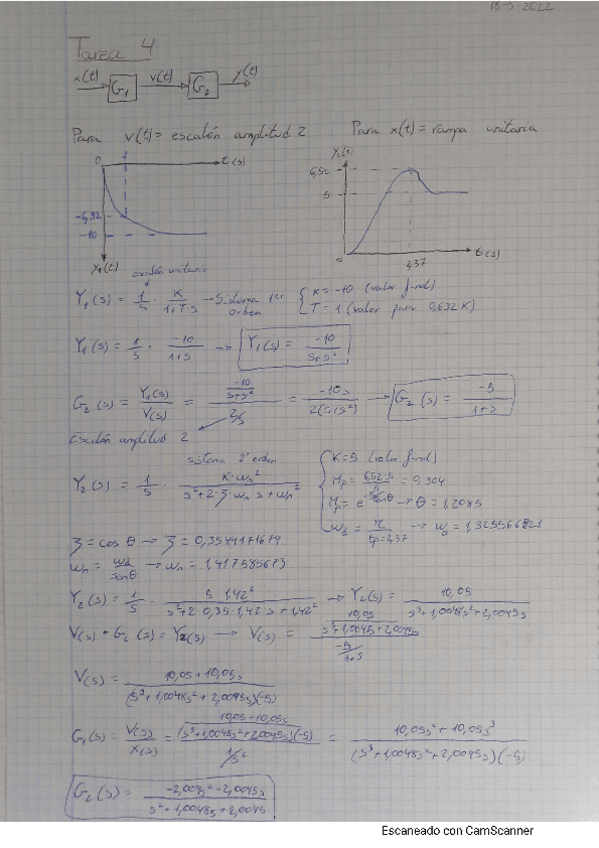 18-5-2022
Tarea 4
x(t) G₁ v(t) G₂ y(t)
Para v(t) = escalón amplitud 2
Para x(t) = rampa unitaria
0 1 t(s)
-6,32
-10
y₁(t)
y₂(t)
6,52
5
0 2,37 t(s)
escalón unitario
Y₁(s) = 1/s · K/(1+T·s) → Sistema 1er orden { K = -10 (valor final)
T = 1 (valor para 0,632K)
Y₁(s) = 1/s · -10/(1+s) → Y₁(s) = -10/(s+s²)
G₂(s) = Y₁(s)/V(s) = (-10/(s+s²))/(2/s) = -10s/(2(s+s²)) → G₂(s) = -5/(1+s)
Escalón amplitud 2
sistema 2º orden
Y₂(s) = 1/s · K·wn²/(s²+2·ζ·wn s+wn²)
K = 5 (valor final)
Mp = 6,52-5/5 = 0,304
θ = 1,2085
wd = π/tp=2,37 → wd = 1,325566821
ζ = cos θ → ζ = 0,3544171674
wn = wd/senθ → wn = 1,417585673
Y₂(s) = 1/s · 5·1,42²/(s²+2·0,35·1,42·s+1,42²) → Y₂(s) = 10,05/(s³+1,0048s²+2,0095s)
V(s) · G₂(s) = Y₂(s) → V(s) = (10,05/(s³+1,0048s²+2,0095s))/(-5/(1+s))
V(s) = (10,05+10,05s)/((s³+1,0048s²+2,0095s)(-5))
G₁(s) = V(s)/X(s) = ((10,05+10,05s)/((s³+1,0048s²+2,0095s)(-5)))/(1/s²) = (10,05s²+10,05s³)/((s³+1,0048s²+2,0095s)(-5))
G₂(s) = (-2,009s²-2,0095s)/(s²+1,0048s+2,0095)
Escaneado con CamScanner